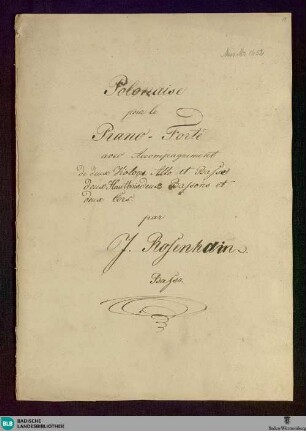 Mus. Hs. 1312
Polonaise
pour le
Piano-Forté
avec Accompagnement
de deux Violons, Alto et Basse,
deux Hautbois, deux Bassons et
deux Cors.
par
J. Rosenhain.
Basso
BLB
BADISCHE
LANDESBIBLIOTHEK
Baden-Württemberg